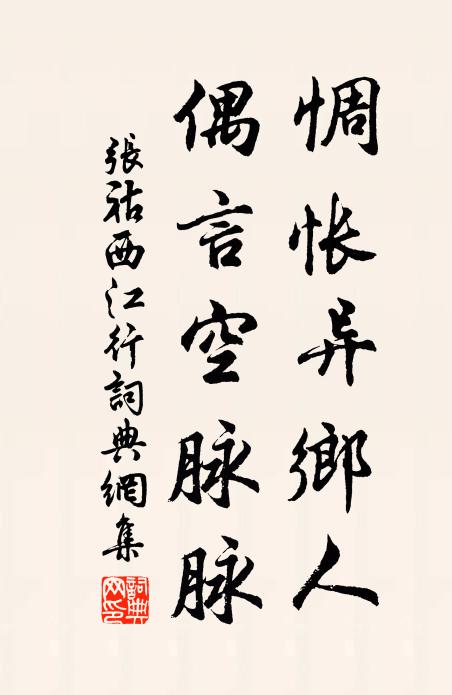 惆怅异鄉人
偶言空脉脉
張祜西江行詞典網集
詞典网印